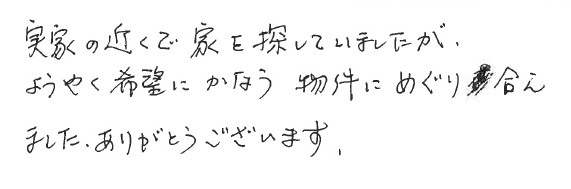 実家の近くで家を探していましたが、
ようやく希望にかなう物件にめぐり合え
ました、ありがとうございます、